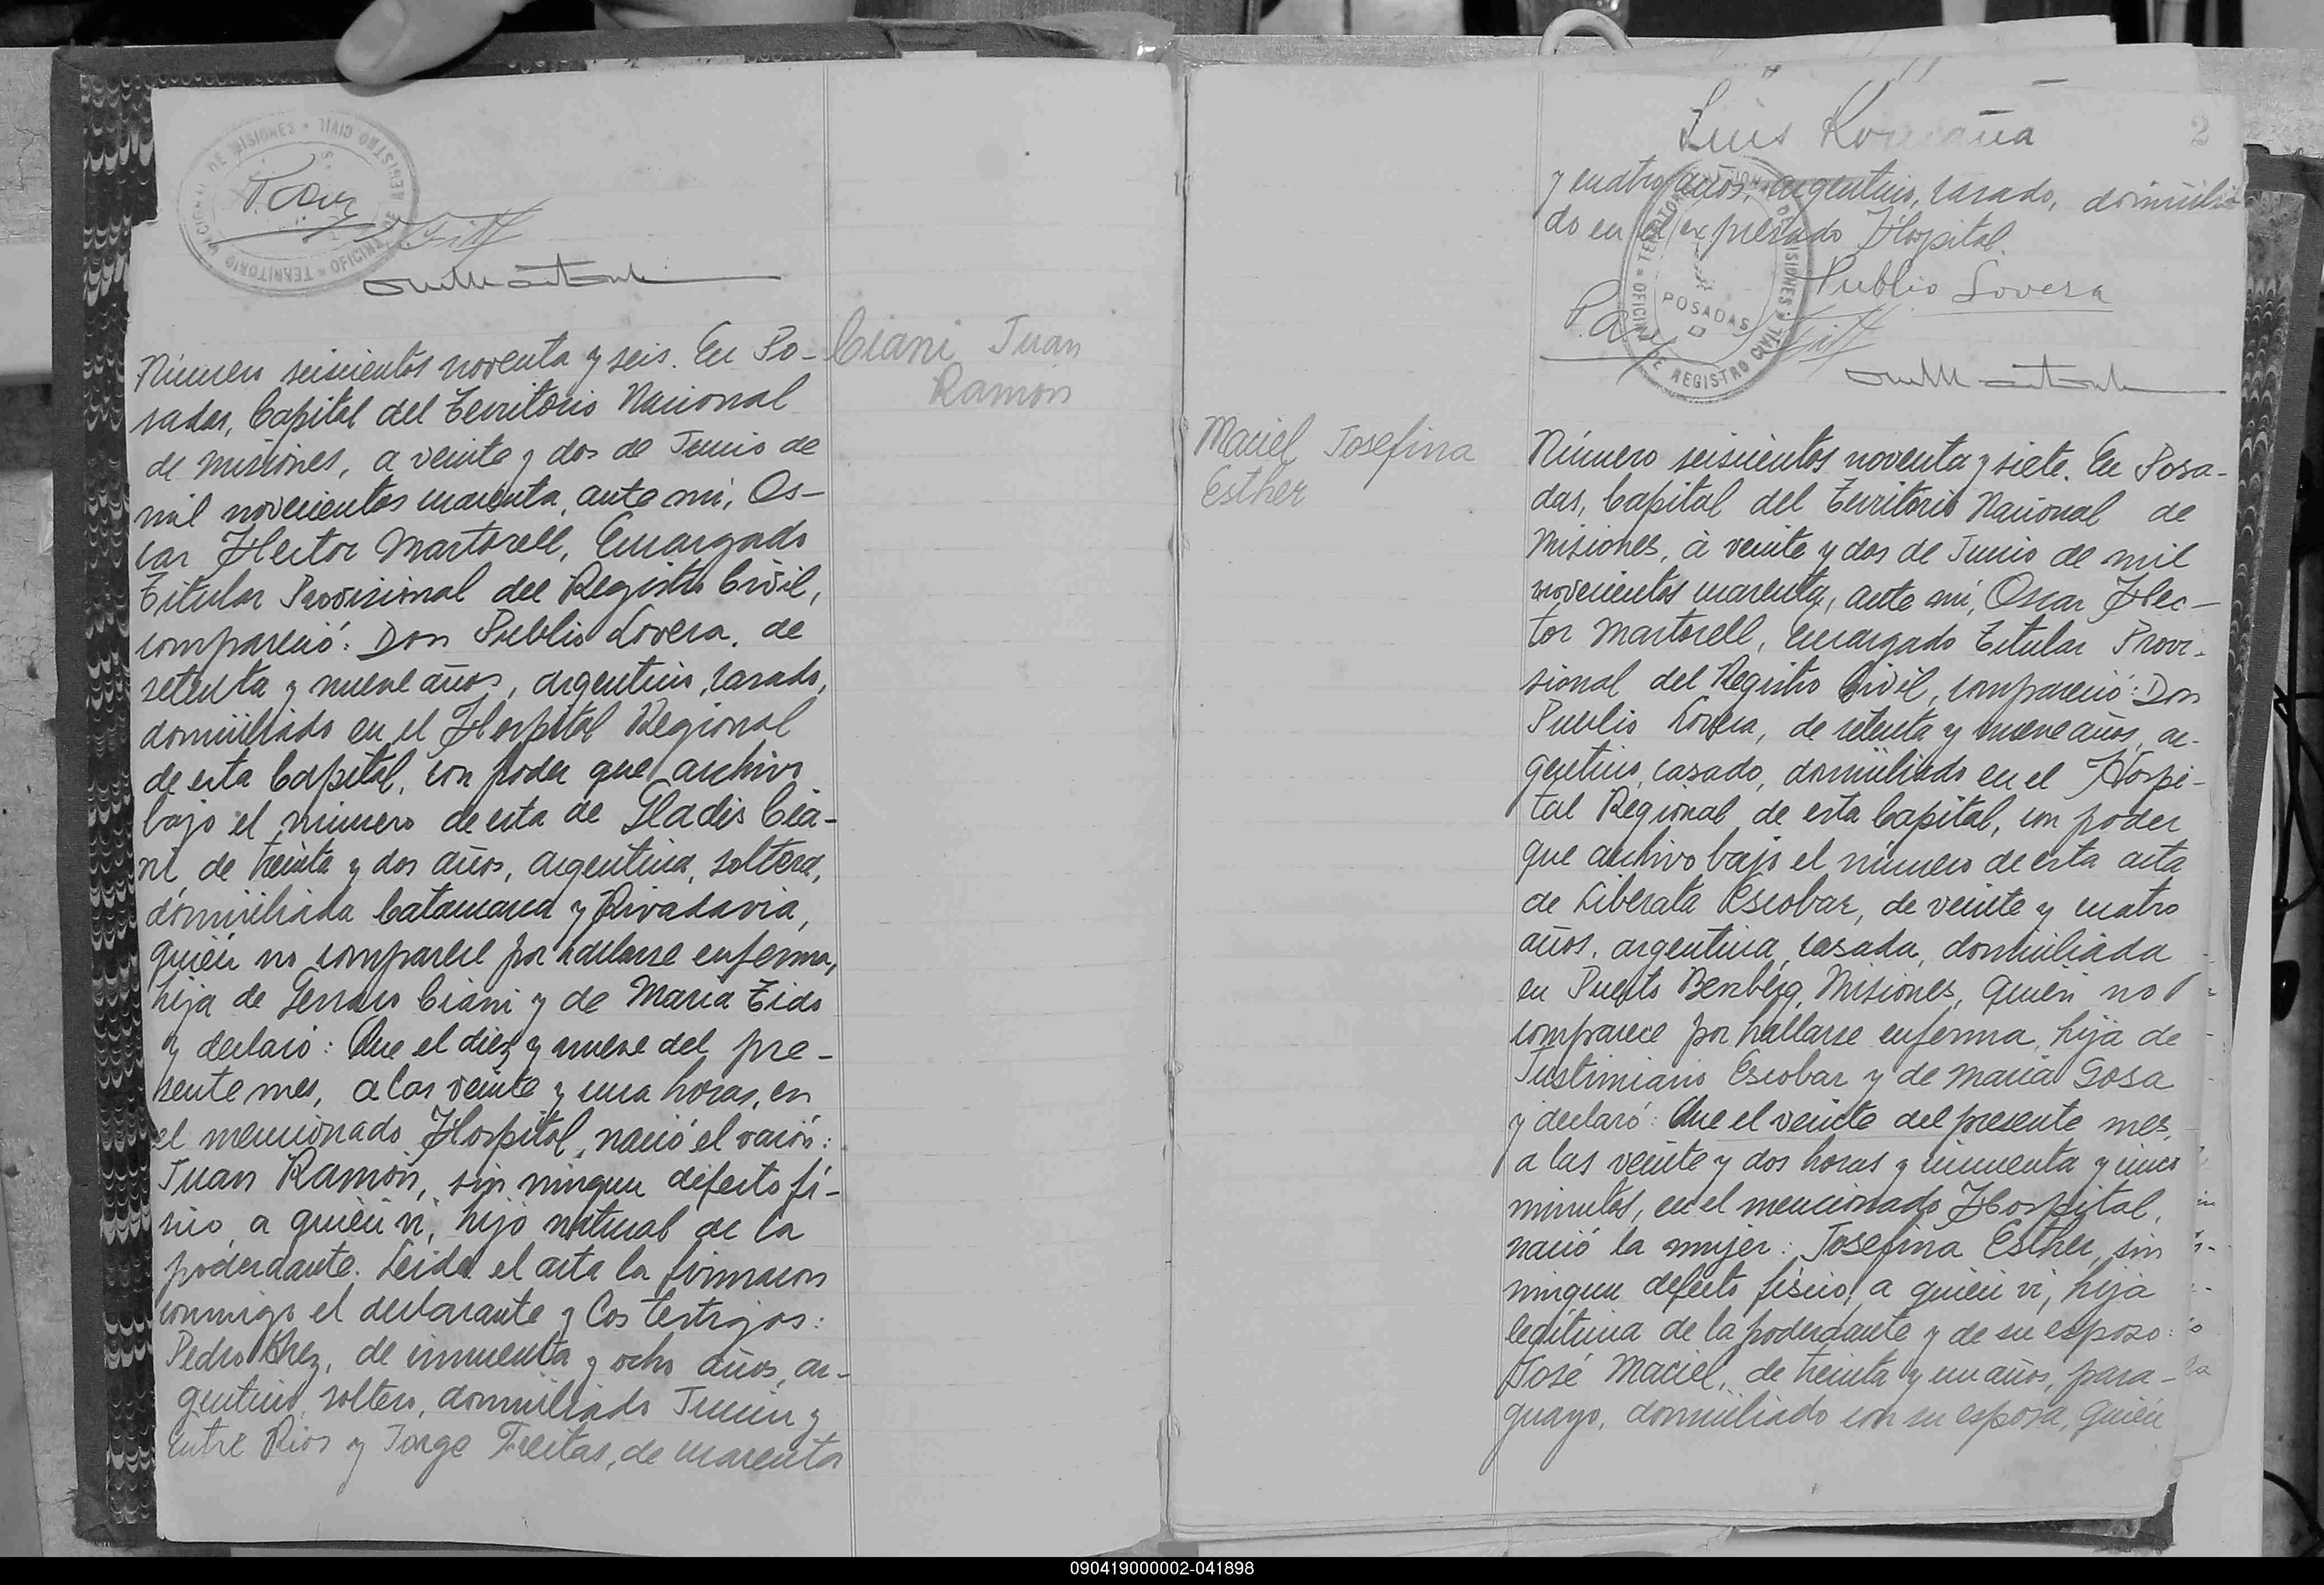 Número seiscientos noventa y seis. En Po-
sadas, Capital del Territorio Nacional
de Misiones, a veinte y dos de Junio de
mil novecientos cuarenta, ante mi, Os-
car Hector Martorell, Encargado
Titular Provisional del Registro Civil,
compareció: Don Publio Lovera, de
setenta y nueve años, argentino, casado,
domiciliado en el Hospital Regional
de esta Capital, con poder que archivo
bajo el número de esta de Gladis Cia-
ni, de treinta y dos años, argentina, soltera,
domiciliada Catamarca y Rivadavia,
quién no comparece por hallarse enferma,
hija de Genaro Ciani y de Maria Tido
y declaró: Que el diez y nueve del pre-
sente mes, a las veinte y una horas, en
el mencionado Hospital, nació el varón:
Juan Ramón, sin ningun defecto fí-
sico, a quién ví, hijo natural de la
poderdante. Leida el acta la firmaron
conmigo el declarante y los testigos:
Pedro, de cincuenta y ocho años, ar-
gentino, soltero, domiciliado Junín y
entre Rios y Jorge Freitas, de cuarenta
Ciani Juan
Ramón
2
Luis
y cuatro años, argentino, casado, domicilia
do en el expresado Hospital.
Publio Lovera
POSADAS
OFICINA DE REGISTRO CIVIL
Maciel Josefina
Esther
Número seiscientos noventa y siete. En Posa-
das, Capital del Territorio Nacional de
Misiones, à veinte y dos de Junio de mil
novecientos cuarenta, ante mi, Oscar Hec-
tor Martorell, Encargado Titular Provi-
sional del Registro Civil, compareció: Don
Publio Lovera, de setenta y nueve años, ar-
gentino, casado, domiciliado en el Hospi-
tal Regional de esta Capital, con poder
que archivo bajo el número de esta acta
de Liberata Escobar, de veinte y cuatro
años, argentina, casada, domiciliada
en Puerto Bemberg, Misiones, quién no
comparece por hallarse enferma, hija de
Justiniano Escobar y de Maria Sosa
y declaró: Que el veinte del presente mes,
a las veinte y dos horas y cincuenta y cinco
minutos, en el mencionado Hospital,
nació la mujer: Josefina Esther, sin
ningun defecto fisico, a quién ví, hija
legítima de la poderdante y de su esposo:
José Maciel, de treinta y un años, para-
guayo, domiciliado con su esposa, quién
090419000002-041898